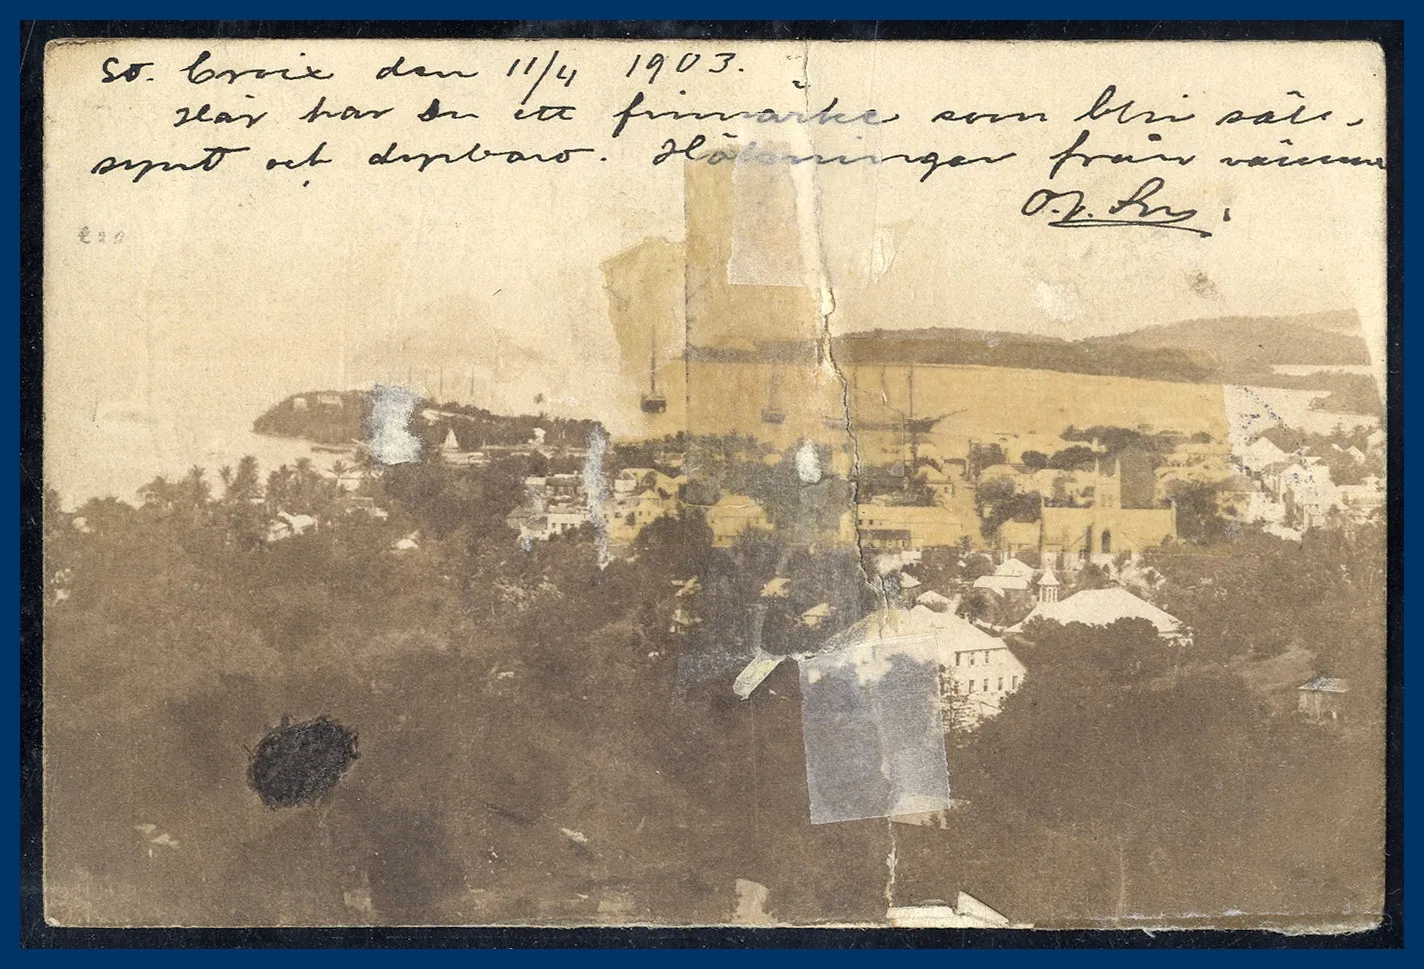 St. Croix den 11/4 1903.
Här har Du ett frimärke som blir säll-
synt och dyrbart. Hälsningar från vännen